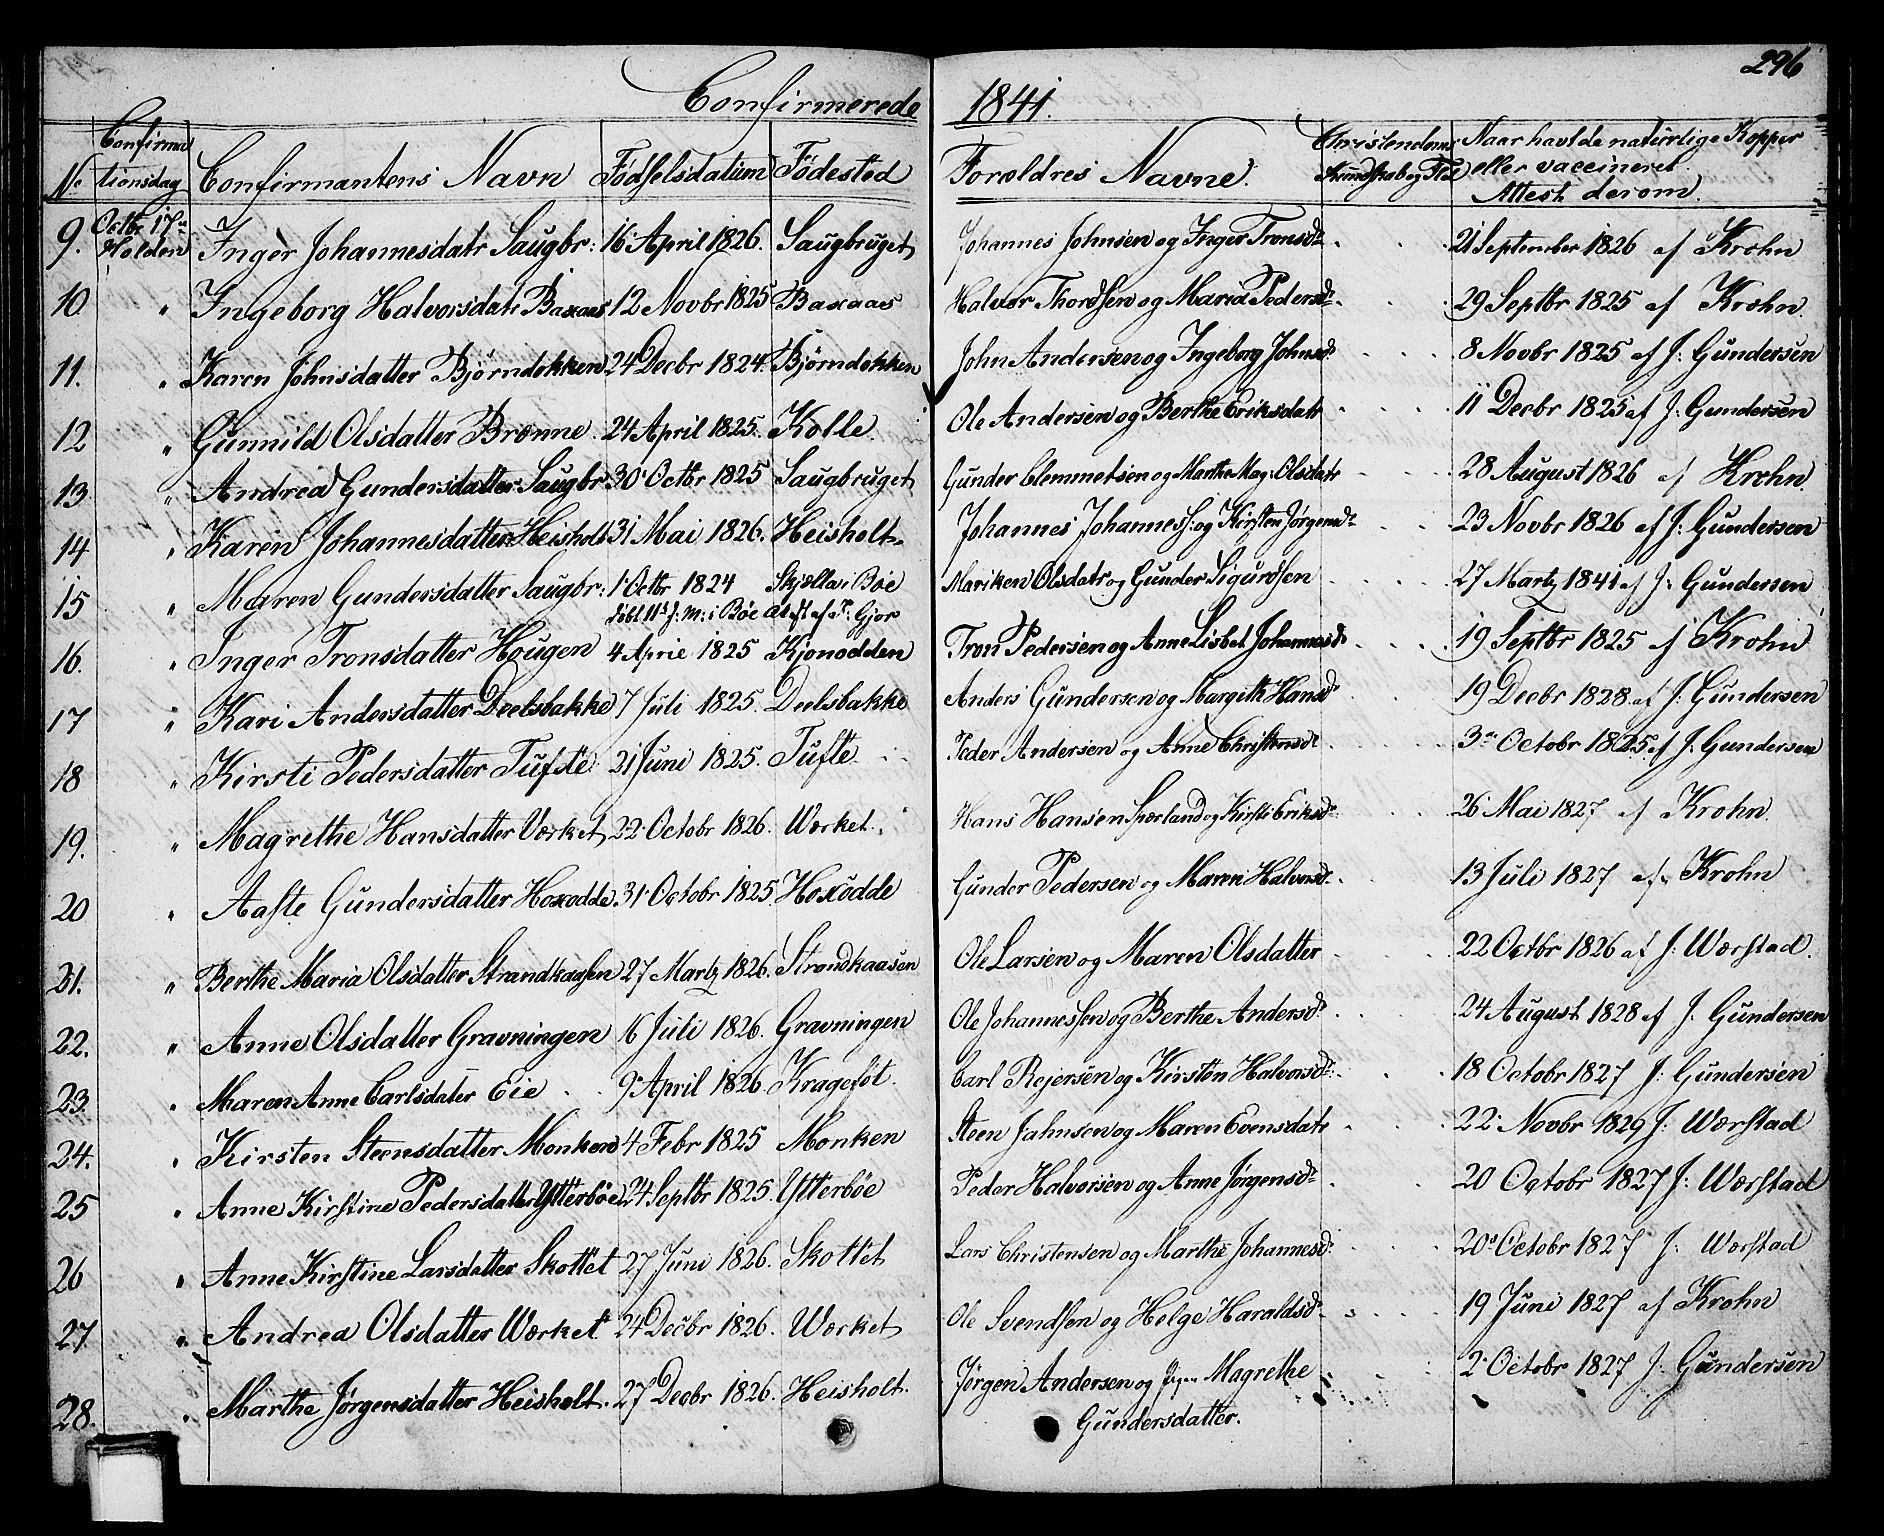 296
Confirmerede 1841.
No Confirmationsdag Confirmantens Navn Födselsdatum Födested Foroldres Navne. Christendoms Kundskab og Flid Naar havt de naturlige Kopper eller vaccineret Attest derom.
9. Octbr 17de Holden Inger Johannesdatr Saugbr: 16 April 1826. Saugbruget Johannes Johnsen og Inger Tronsdr 21 September 1826 af Krohn
10. " Ingeborg Halvorsdatr Baxaas 12 Novbr 1825 Baxaas Halvor Thordsen og Maria Pedersdr 29 Septbr 1825 af Krohn.
11. " Karen Johnsdatter Bjørndokken 24 Decbr 1824. Bjørndokken John Andersen og Ingeborg Johnsdr 8 Novbr 1825 af J: Gundersen
12 " Gunnild Olsdatter Brønne. 24 April 1825. Kolle. Ole Andersen og Berthe Eriksdatr 11 Decbr 1825 af J: Gundersen
13 " Andrea Gundersdatter Saugbr 30 Octbr 1825 Saugbruget Gunder Clemmetsen og Marthe Mag: Olsdatr 28 August 1826 af Krohn.
14 " Karen Johannesdatter Heisholt 31 Mai 1826. Heisholt Johannes Johanness: og Kirsten Jørgensdr 23 Novbr 1826 af J: Gundersen
15 " Maren Gundersdatter Saugbr: 1 Octbr 1824 Skjælla i Bøe Mariken Olsdatr og Gunder Sigurdsen 27 Martz 1841 af J: Gundersen
døbt 11te J: M: i Bøe
16. " Inger Tronsdatter Hougen 4 April 1825 Kjonodden Tron Pedersen og Anne Lisbet Johannesdr 19 Septbr 1825 af Krohn
17 " Kari Andersdatter Deelsbakke 7 Juli 1825. Deelsbakke Anders Gundersen og Margith Hansdr 19 Decbr 1828 af J: Gundersen
18 " Kirsti Pedersdatter Tufste 21 Juni 1825. Tufte Peder Andersen og Anne Christensdr 3de Octobr 1825 af J: Gundersen
19. " Magrethe Hansdatter Værket 22 Octobr 1826. Worket. Hans Hansen Skærland og Kirsti Eriksdr 26 Mai 1827 af Krohn.
20 " Aaste Gundersdatter Hoxodde 31 Octobr 1825 Hoxodde Gunder Pedersen og Maren Halvorsdr 13 Juli 1827 af Krohn
21. " Berthe Maria Olsdatter Strandkaasen 27 Martz 1826. Strandkaasen Ole Larsen og Maren Olsdatter 22 Octbr 1826 af J: Wærstad.
22. " Anne Olsdatter Gravningen 16 Juli 1826. Gravningen Ole Johannessen og Berthe Andersdr 24 August 1828 af J. Gundersen
23. " Maren Anne Carlsdater Eie 9 April 1826. Kragefot. Carl Rejersen og Kirsten Halvorsdr 18 Octobr 1827 J: Gundersen
24. " Kirsten Steensdatter Monken 4 Febr 1825 Monken Steen Jahnsen og Maren Evensdatr 22 Novbr 1829 J: Wærstad
25 " Anne Kirstine Pedersdatter Ytterbøe 24 Septbr 1825. Ytterbøe Peder Halvorsen og Anne Jørgensdr 20 Octobr 1827 J: Wærstad
26 " Anne Kirstine Larsdatter Skottet 27 Juni 1826. Skottet Lars Christensen og Marthe Johannesdr 20de Octobr 1827 J: Wærstad
27. " Andrea Olsdatter Wærket 24 Decbr 1826. Wærket Ole Svendsen og Helge Haraldsdr 19 Juni 1827 af Krohn
28. " Marthe Jørgensdatter Heisholt. 27 Decbr 1826. Heisholt. Jørgen Andersen og Magrethe 2 Octobr 1827 J: Gundersen
Gundersdatter.